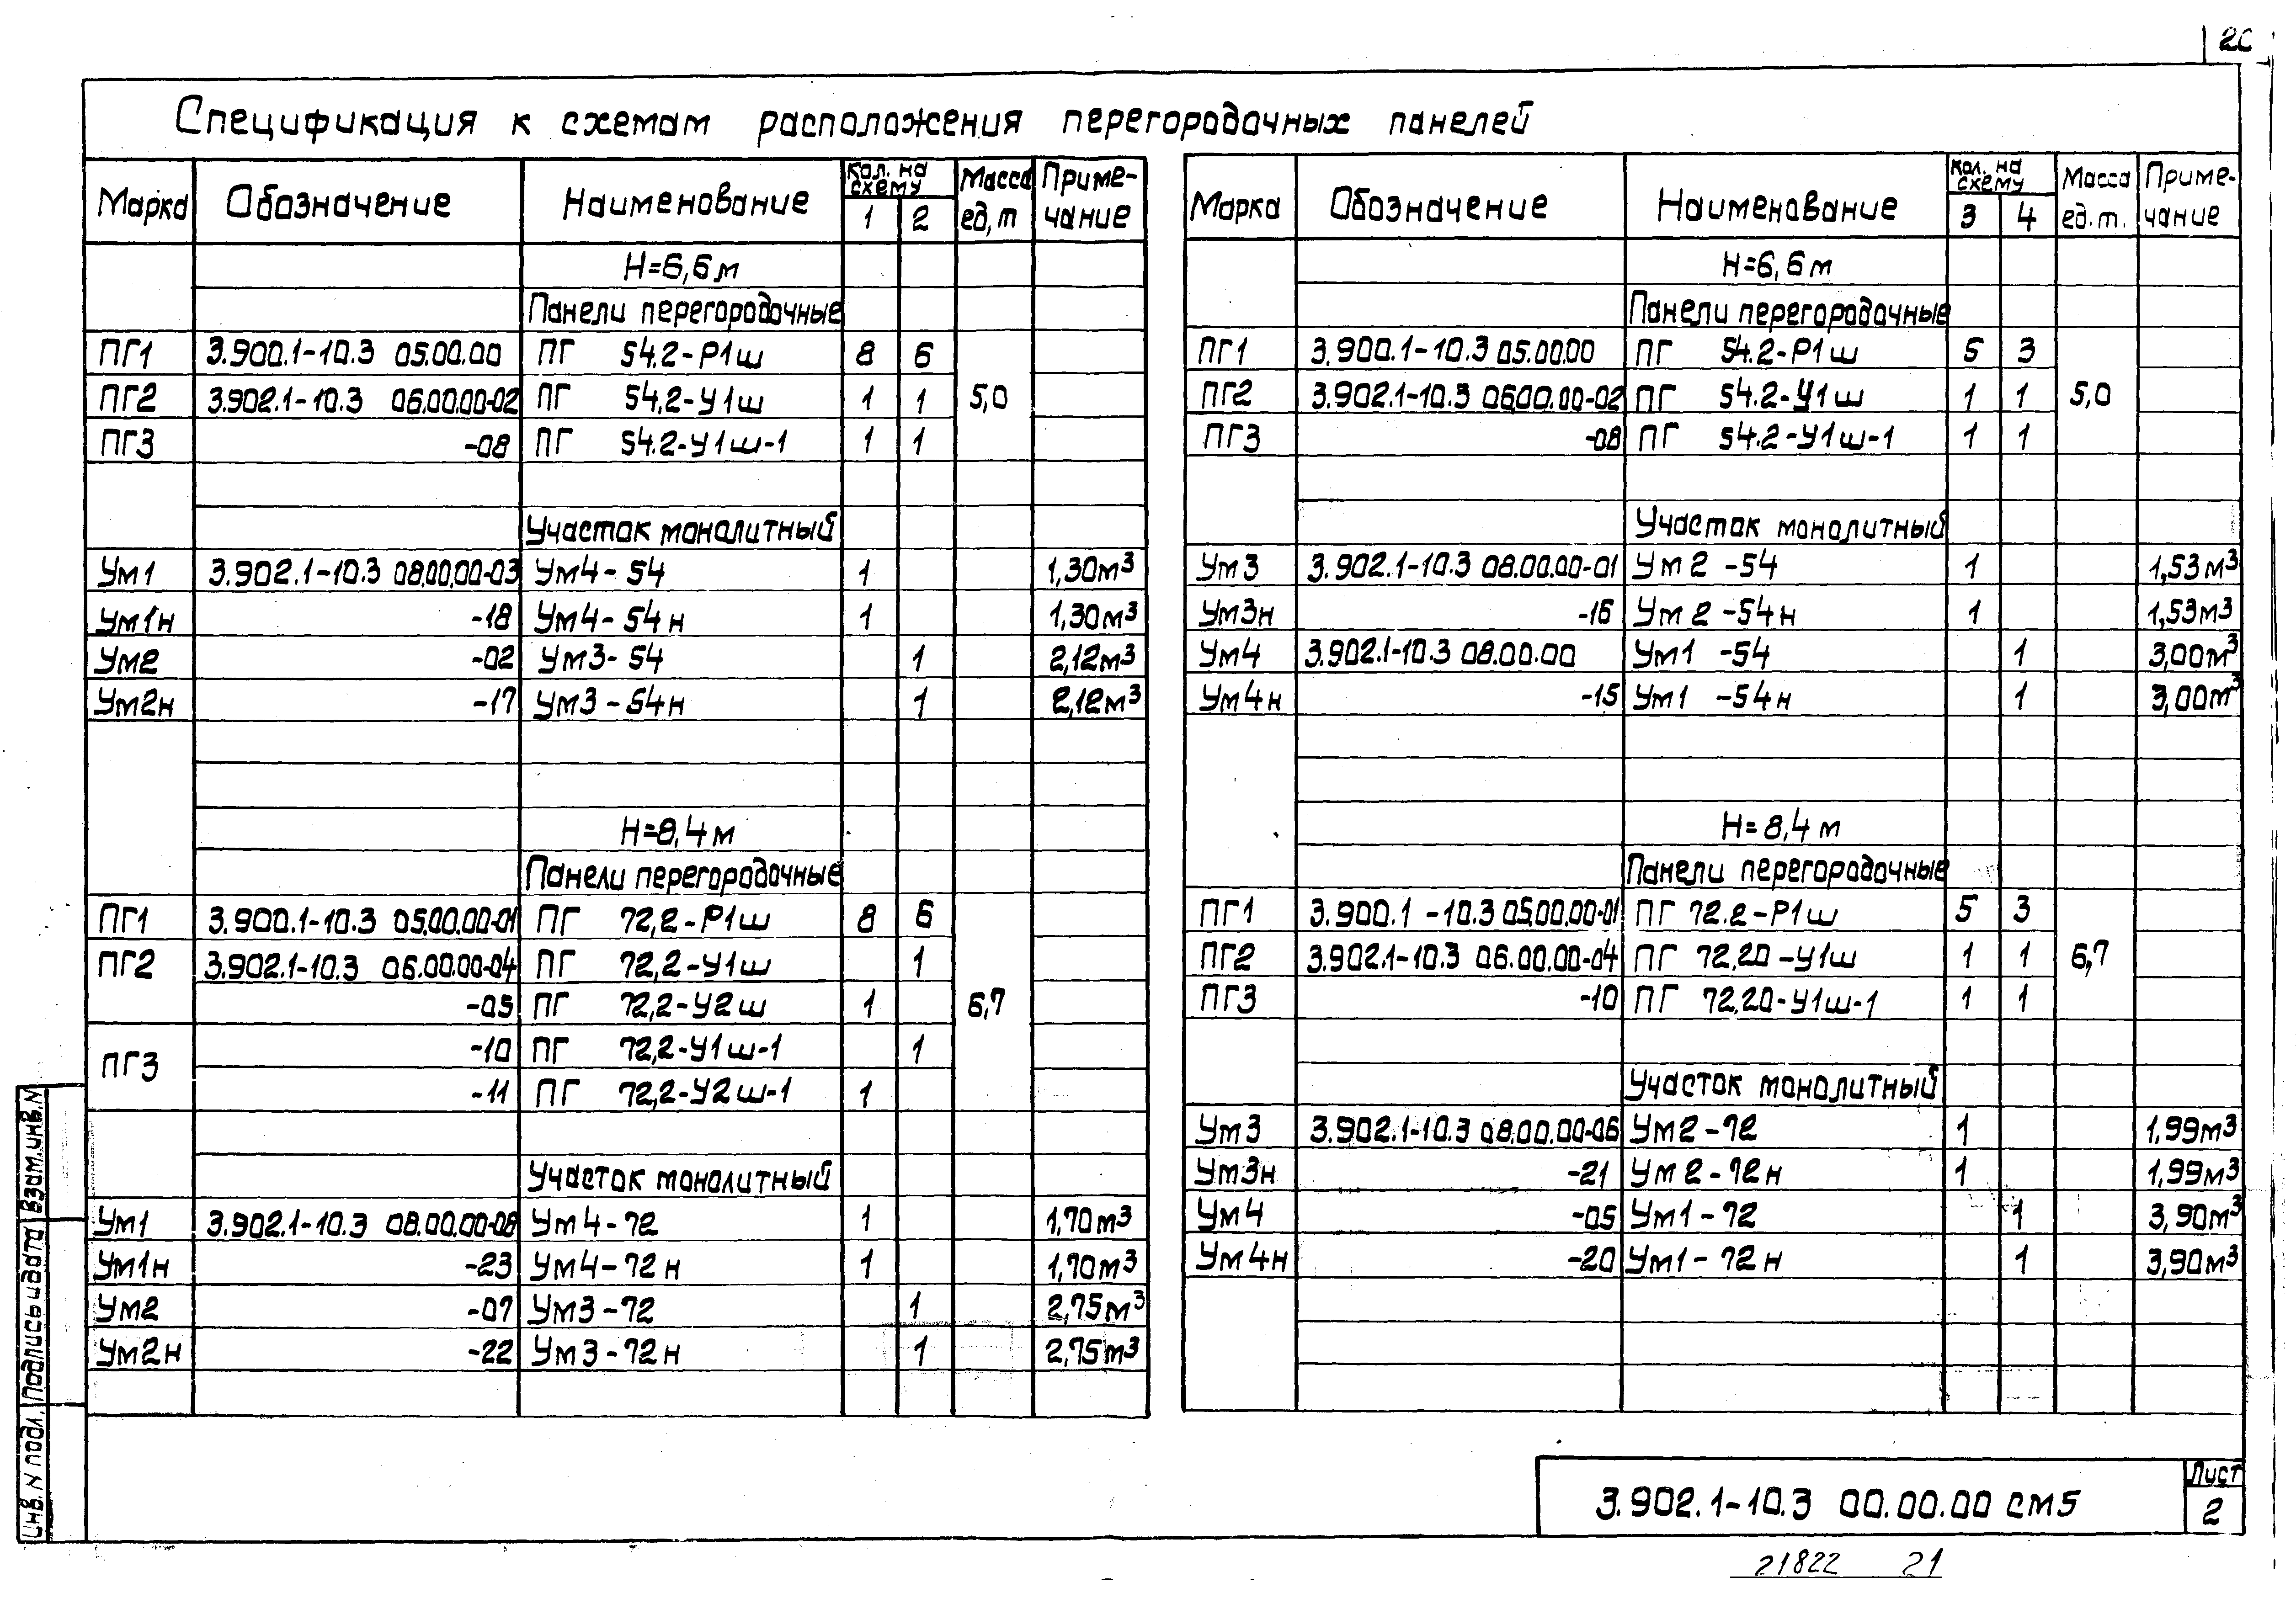 Спецификация к схемам расположения перегородочных панелей
Марка Обозначение Наименование Кол. на схему Масса ед, т Приме-чание
1 2
Н=6,6м
Панели перегородочные
ПГ1 3.900.1-10.3 05.00.00 ПГ 54.2-Р1ш 8 6
ПГ2 3.902.1-10.3 06.00.00-02 ПГ 54.2-У1ш 1 1 5,0
ПГ3 -08 ПГ 54.2-У1ш-1 1 1
Участок монолитный
Ум1 3.902.1-10.3 08.00.00-03 Ум4-54 1 1,30м³
Ум1н -18 Ум4-54н 1 1,30м³
Ум2 -02 Ум3-54 1 2,12м³
Ум2н -17 Ум3-54н 1 2,12м³
Н=8,4м
Панели перегородочные
ПГ1 3.900.1-10.3 05.00.00-01 ПГ 72,2-Р1ш 8 6
ПГ2 3.902.1-10.3 06.00.00-04 ПГ 72,2-У1ш 1
-05 ПГ 72,2-У2ш 1 6,7
ПГ3 -10 ПГ 72,2-У1ш-1 1
-11 ПГ 72,2-У2ш-1 1
Участок монолитный
Ум1 3.902.1-10.3 08.00.00-08 Ум4-72 1 1,70м³
Ум1н -23 Ум4-72н 1 1,70м³
Ум2 -07 Ум3-72 1 2,75м³
Ум2н -22 Ум3-72н 1 2,75м³
Марка Обозначение Наименование Кол. на схему Масса ед.т. Приме-чание
3 4
Н=6,6м
Панели перегородочные
ПГ1 3.900.1-10.3 05.00.00 ПГ 54.2-Р1ш 5 3
ПГ2 3.902.1-10.3 06.00.00-02 ПГ 54.2-У1ш 1 1 5,0
ПГ3 -08 ПГ 54.2-У1ш-1 1 1
Участок монолитный
Ум3 3.902.1-10.3 08.00.00-01 Ум2-54 1 1,53м³
Ум3н -16 Ум2-54н 1 1,53м³
Ум4 3.902.1-10.3 08.00.00 Ум1-54 1 3,00м³
Ум4н -15 Ум1-54н 1 3,00м³
Н=8,4м
Панели перегородочные
ПГ1 3.900.1-10.3 05.00.00-01 ПГ 72.2-Р1ш 5 3
ПГ2 3.902.1-10.3 06.00.00-04 ПГ 72.20-У1ш 1 1 6,7
ПГ3 -10 ПГ 72.20-У1ш-1 1 1
Участок монолитный
Ум3 3.902.1-10.3 08.00.00-06 Ум2-72 1 1,99м³
Ум3н -21 Ум2-72н 1 1,99м³
Ум4 -05 Ум1-72 1 3,90м³
Ум4н -20 Ум1-72н 1 3,90м³
Инв. N подл. Подпись и дата Взам.инв.N
3.902.1-10.3 00.00.00 см5
Лист
2
21822 21